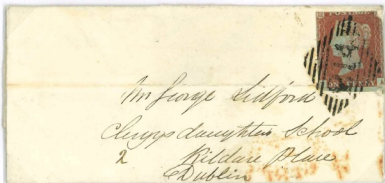 Mr George Lidford
Clergys daughters School
2 Kildare Place
Dublin